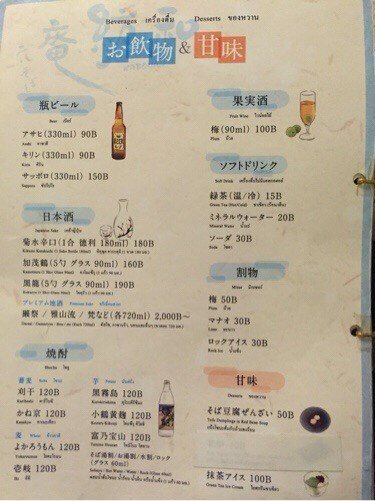 Beverages เครื่องดื่ม Desserts ของหวาน
お飲物&甘味
瓶ビール
Beer เบียร์
アサヒ(330ml) 90B
Asahi อาซาฮี
キリン(330ml) 90B
Kirin คิริน
サッポロ(330ml) 150B
Sapporo ซัปโปโร
日本酒
Japanese Sake เหล้าญี่ปุ่น
菊水辛口(1合 徳利 180ml) 180B
加茂鶴(5勺 グラス 90ml) 160B
黒龍(5勺 グラス 90ml) 190B
プレミアム地酒 Premium Sake
獺祭 / 雅山流 / 梵など(各720ml) 2,000B~
焼酎
Shochu โชจู
蕎麦 Soba โซบะ
刈干 120B
Kariboshi
かね京 120B
Kanekyo
麦 Wheat ข้าวสาลี
よかろうもん 120B
Yokaroumon
壱岐 120B
Iki อิกิ
芋 Potato มันฝรั่ง
黒霧島 120B
Kurokirishima
小鶴黄麹 120B
富乃宝山 120B
Tominohozan
そば湯割/お湯割/水割/ロック
(グラス 60ml)
果実酒
Fruit Wine ไวน์ผลไม้
梅(90ml) 100B
Plum บ๊วย
ソフトドリンク
Soft Drink เครื่องดื่มไม่มีแอลกอฮอล์
緑茶(温/冷) 15B
Green Tea (Hot/Cold) ชาเขียว (ร้อน/เย็น)
ミネラルウォーター 20B
Mineral Water น้ำแร่
ソーダ 30B
Soda โซดา
割物
Mixer มิกเซอร์
梅 50B
Plum บ๊วย
マナオ 30B
Lime มะนาว
ロックアイス 30B
Rock Ice น้ำแข็ง
甘味
Desserts ของหวาน
そば豆腐ぜんざい 50B
Tofu Dumplings in Red Bean Soup
抹茶アイス 100B
Green Tea Ice Cream ไอศกรีมชาเขียว